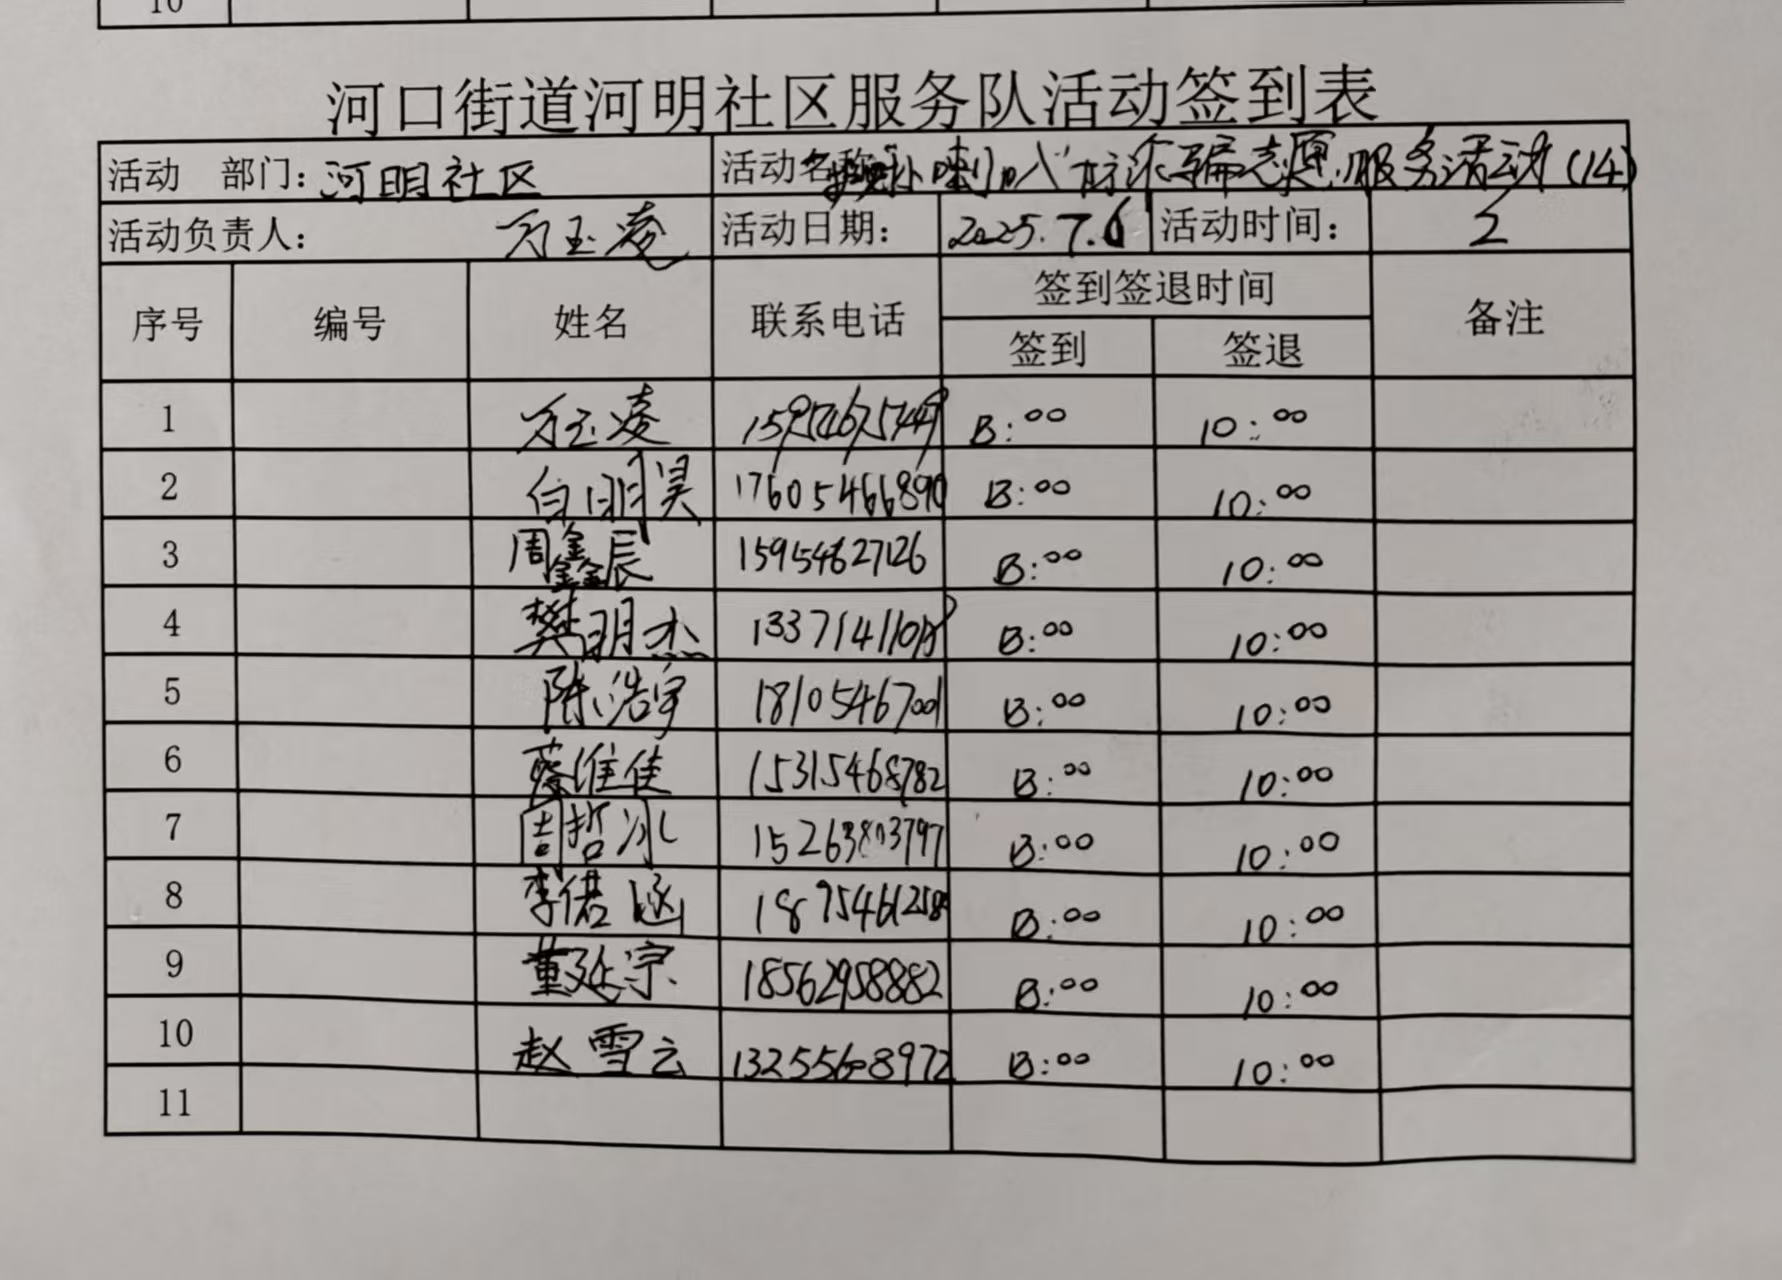 10
河口街道河明社区服务队活动签到表
活动 部门：河明社区 活动名称 小喇叭 防诈骗志愿服务活动(14)
活动负责人： 万玉凌 活动日期： 2025.7.6 活动时间： 2
序号 编号 姓名 联系电话 签到签退时间 备注
签到 签退
1 万玉凌 8:00 10:00
2 白明昊 17605466890 8:00 10:00
3 周鑫辰 15954627126 8:00 10:00
4 樊明杰 8:00 10:00
5 陈浩宇 18105467001 8:00 10:00
6 蔡维佳 15315468782 8:00 10:00
7 周哲冰 15263803797 8:00 10:00
8 李偌涵 8:00 10:00
9 董延宗 18562958882 8:00 10:00
10 赵雪云 13255608972 8:00 10:00
11